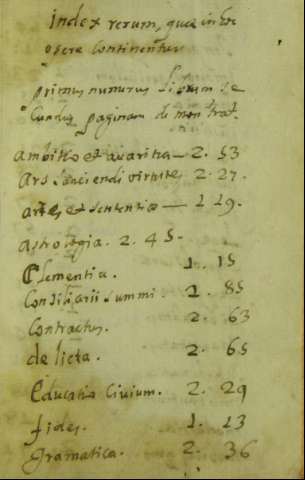 index rerum, quæ in hoc
opere continentur
primus numerus librum se
cundus paginam demonstrat.
ambitio et avaritia — 2. 53
Ars 2. 27.
artes et sententiæ — 1 19.
astrologia. 2. 45.
Clementia. 1. 15
Consiliarii summi. 1. 85
Contractus. 2. 63
delicta. 2. 65
Educatio Civium. 2. 29
fides. 1. 13
Gramatica. 2. 36